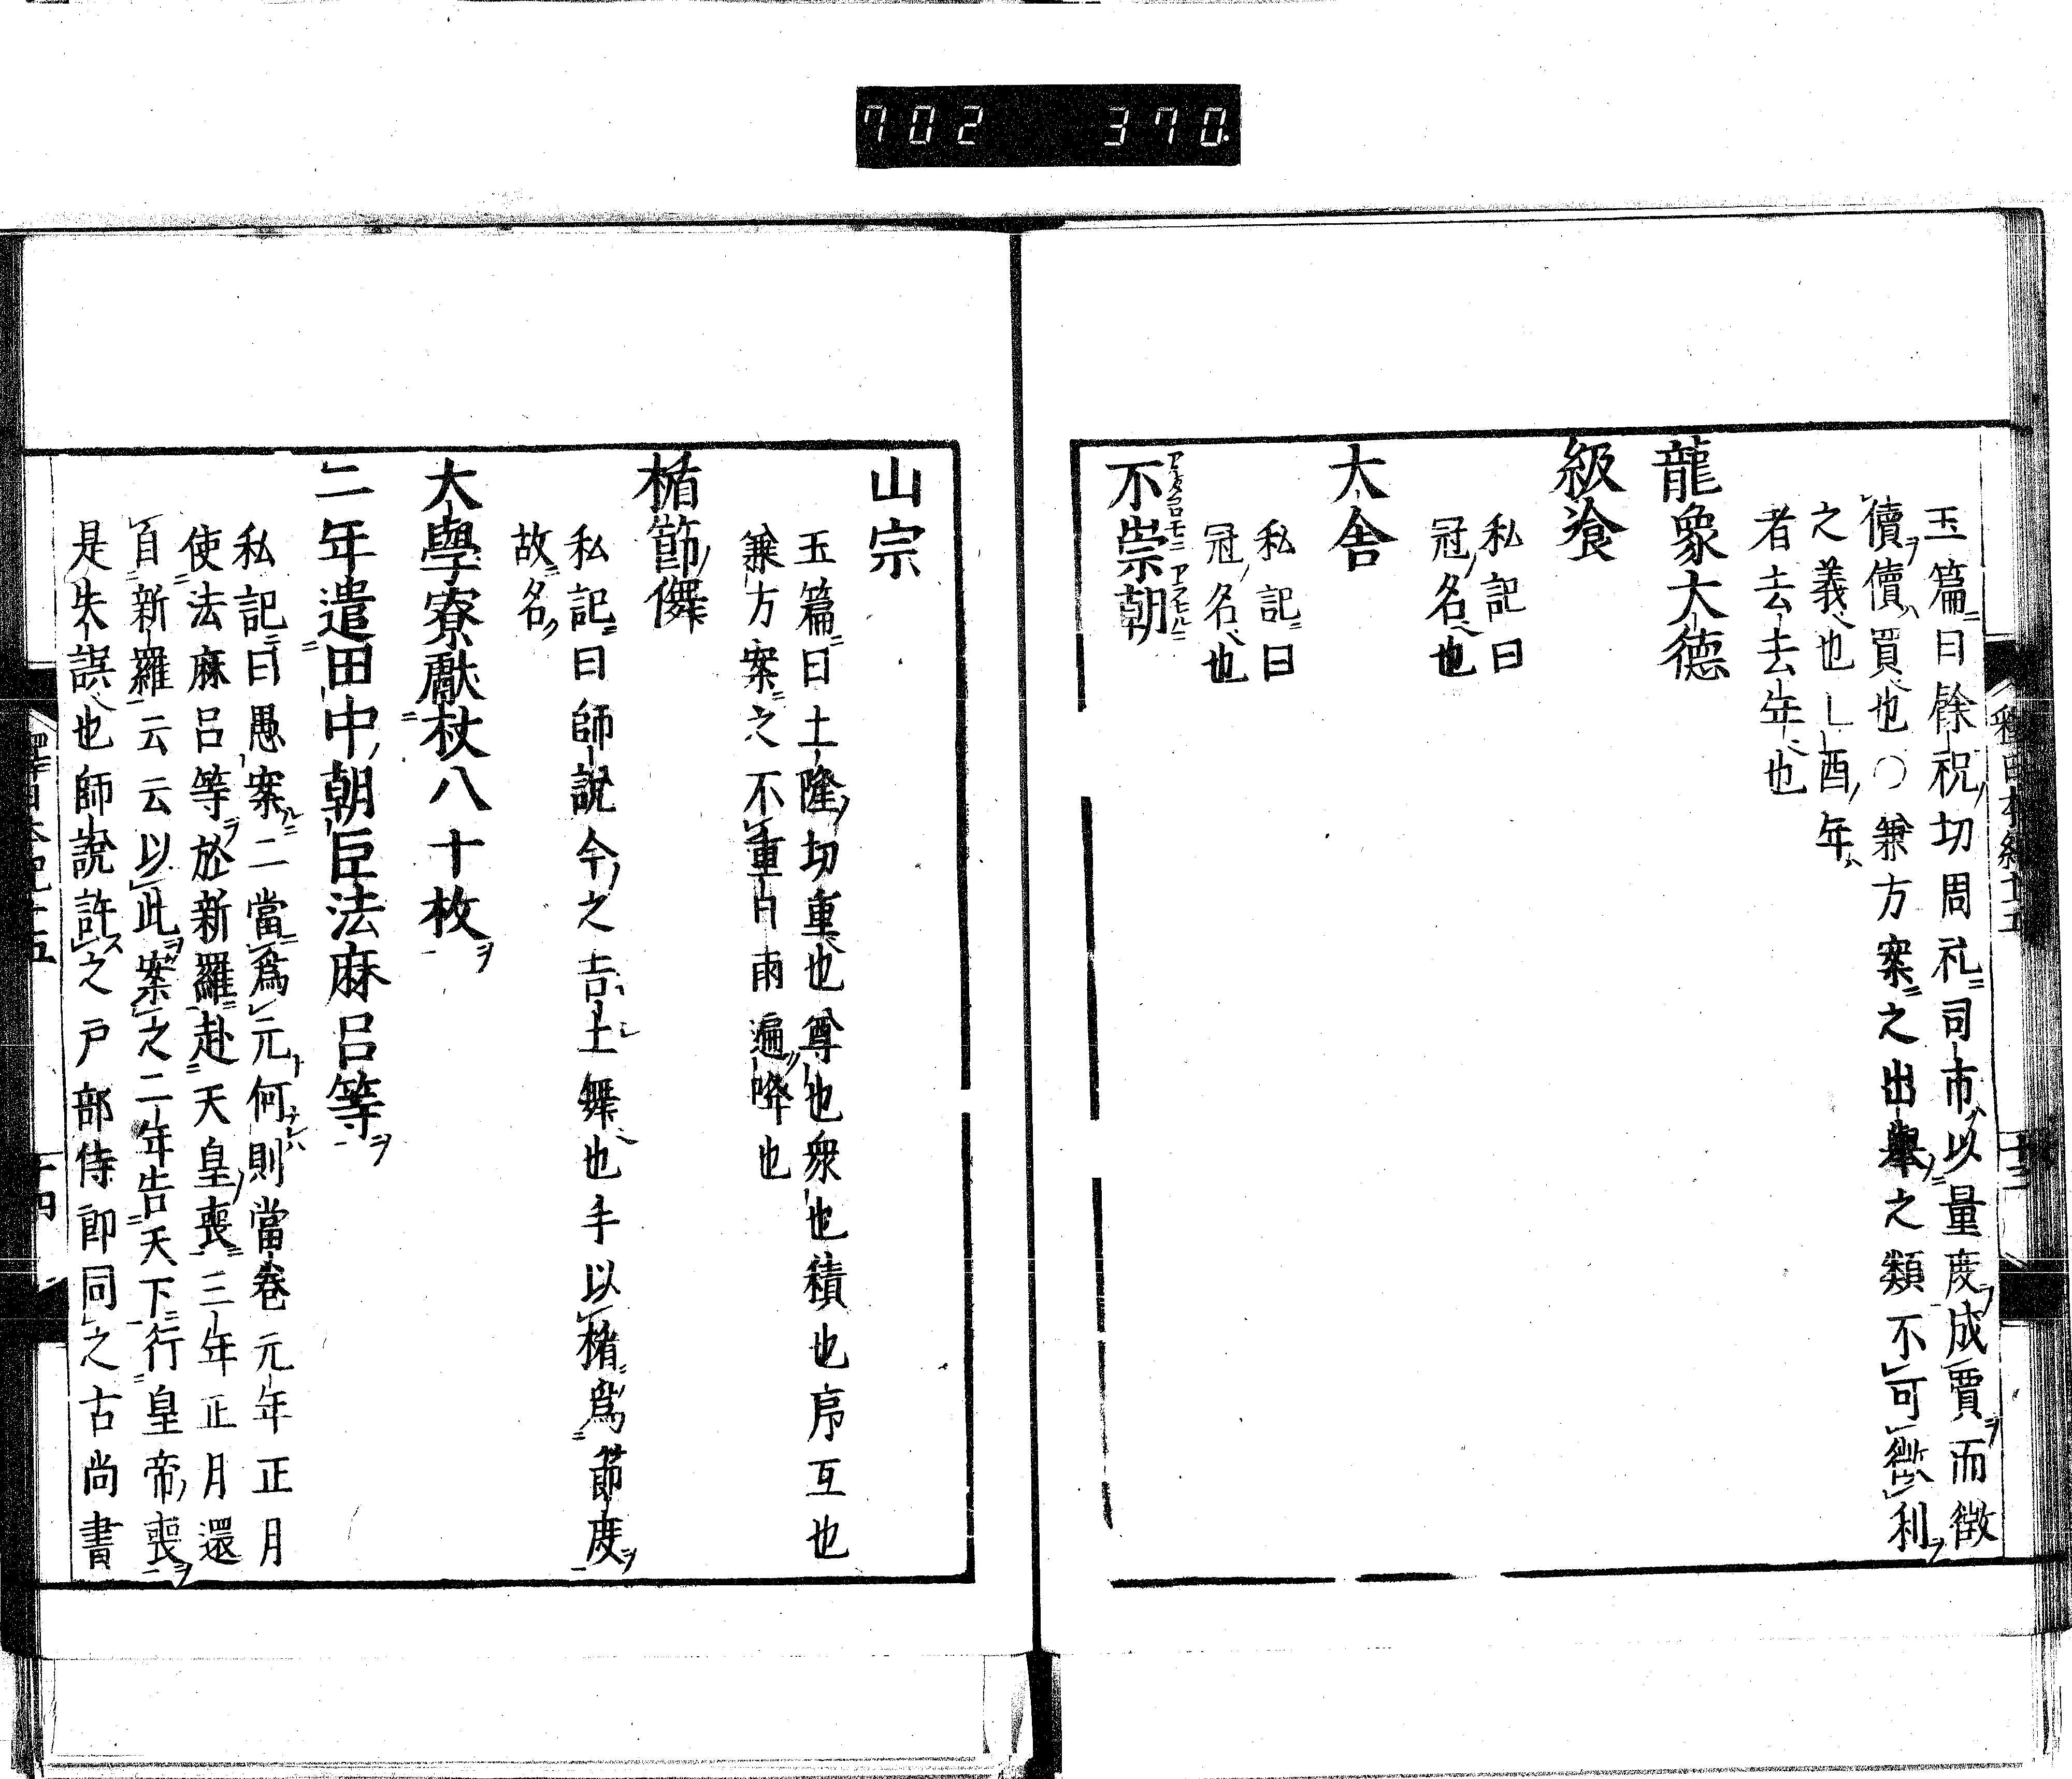 702 370
玉篇曰餘祝切周礼司市以量度成賈而徴
儥儥買也○兼方案之出擧之類不可徴利
之義也乚酉年
者去去年也
龍象大德
級飡
私記曰
冠名也
大舎
私記曰
冠名也
不崇朝
山宗
玉篇曰士隆切重也尊也衆也積也序互也
兼方案之不重日雨遍降也
楯節儛
私記曰師說今之吉士舞也手以楯爲節度
故名
大學寮獻杖八十枚
二年遣田中朝臣法麻呂等
私記曰愚案二當爲元何則當巻元年正月
使法麻呂等於新羅赴天皇喪三年正月還
自新羅云云以此案之二年告天下行皇帝喪
是失誤也師說許之戸部侍郎同之古尚書